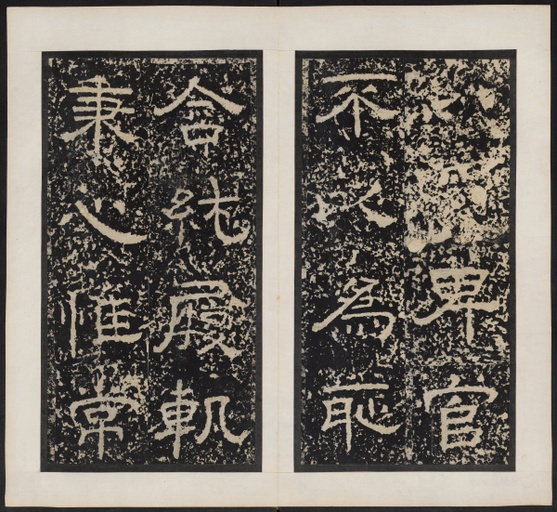 卑官
不以為恥
含純履軌
秉心惟常